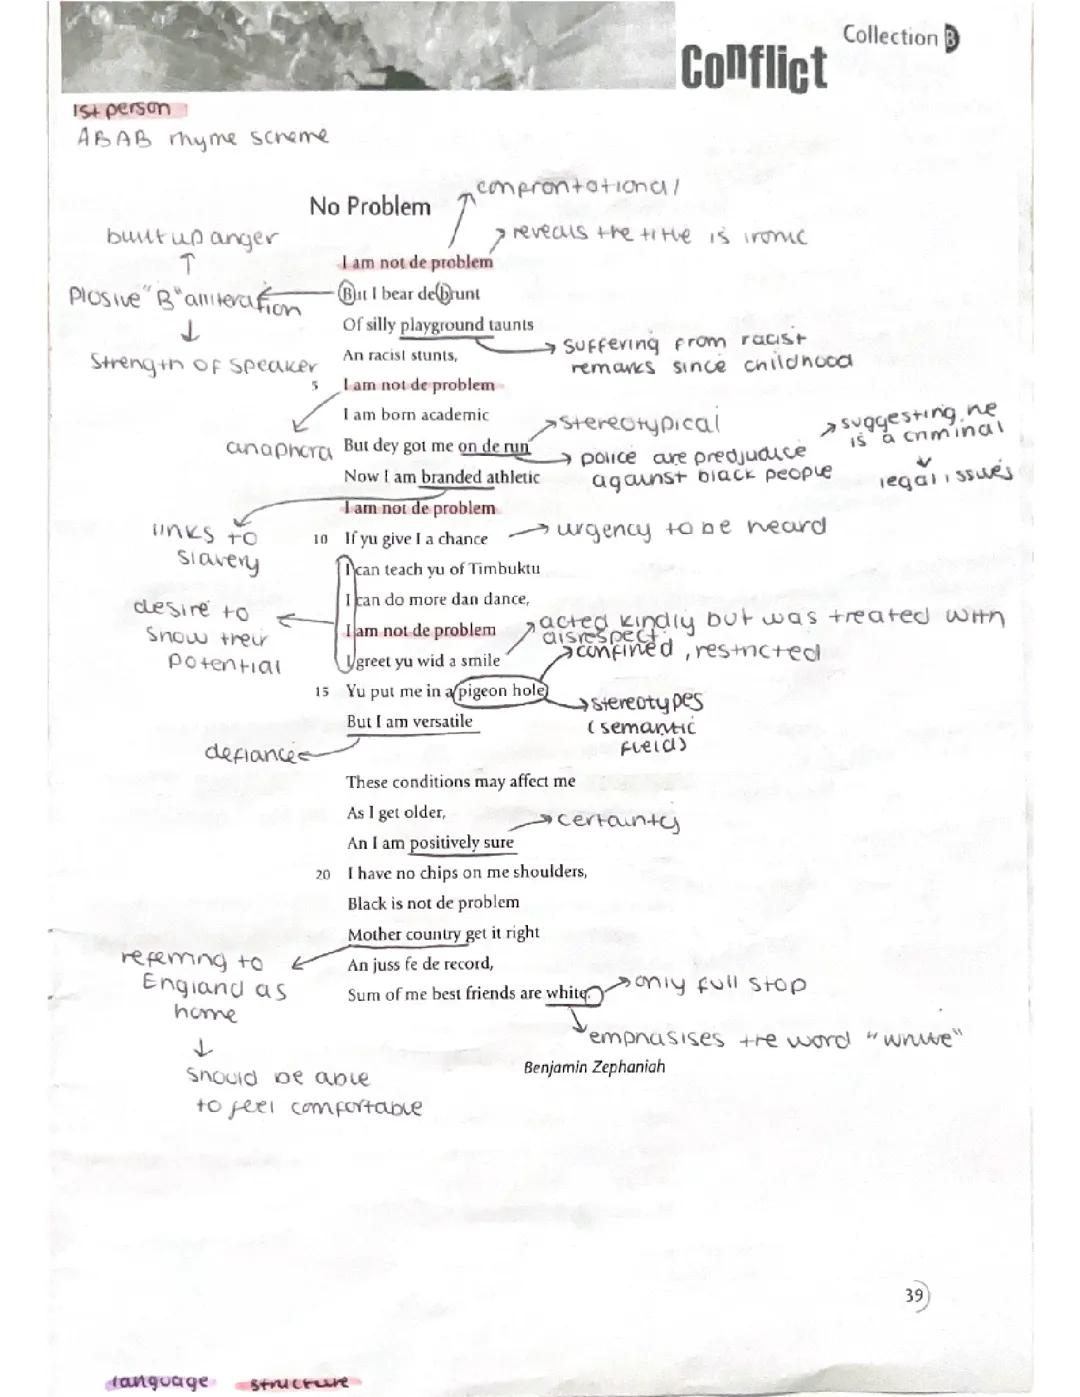 Collection B
Conflict
1st person
ABAB rhyme scheme
No Problem
confrontational
reveals the title is ironic
built up anger
Plosive "B" alliteration
Strength of speaker
anaphora
I am not de problem
But I bear de brunt
Of silly playground taunts
An racist stunts,
suffering from racist
remarks since childhood
5 I am not de problem
I am born academic
But dey got me on de run
Now I am branded athletic
stereotypical
police are predjudice
against black people
suggesting he
is a criminal
legal issues
I am not de problem
10 If yu give I a chance
urgency to be heard
I can teach yu of Timbuktu
I can do more dan dance,
I am not de problem
I greet yu wid a smile
15 Yu put me in a pigeon hole
But I am versatile
links to
slavery
desire to
show their
potential
acted kindly but was treated with
disrespect.
confined, restricted
stereotypes
(semantic
field)
defiance
These conditions may affect me
As I get older,
An I am positively sure
certainty
20 I have no chips on me shoulders,
Black is not de problem
Mother country get it right
An juss fe de record,
Sum of me best friends are white.
referring to
England as
home
should be able
to feel comfortable
only full stop
emphasises the word "white"
Benjamin Zephaniah
39
language structure